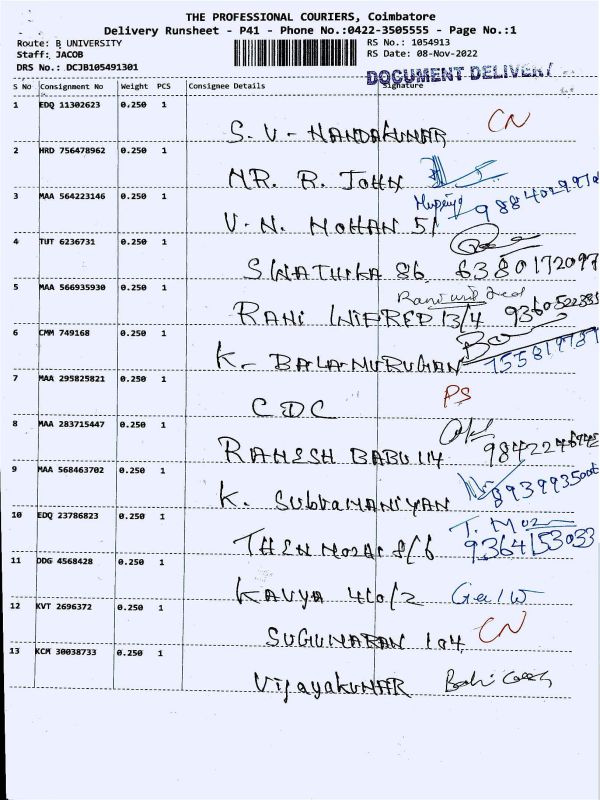 THE PROFESSIONAL COURIERS, Coimbatore
Delivery Runsheet - P41 - Phone No.:0422-3505555 - Page No.:1
Route: B UNIVERSITY RS No.: 1054913
Staff: JACOB RS Date: 08-Nov-2022
DRS No.: DCJB105491301
DOCUMENT DELIVERY
S No Consignment No Weight PCS Consignee Details Signature
1 EDQ 11302623 0.250 1
S. V - NANDAKUMAR CN
2 MRD 756478962 0.250 1
MR. R. JOHN
3 MAA 564223146 0.250 1
V. N. MOHAN 51
4 TUT 6236731 0.250 1
SWATHIKA 86 6380172097
5 MAA 566935930 0.250 1
RANI WIFRED 13/4
6 CMM 749168 0.250 1
K. BALAMURUGAN
7 MAA 295825821 0.250 1
CDC PS
8 MAA 283715447 0.250 1
RAMESH BABU 114
9 MAA 568463702 0.250 1
K. SUBRAMANIYAN
10 EDQ 23786823 0.250 1
THENMOZHI 8/6 9364153033
11 DDG 4568428 0.250 1
KAVYA 410/2
12 KVT 2696372 0.250 1
SUGUMARAN 104 CN
13 KCM 30038733 0.250 1
VIJAYAKUMAR